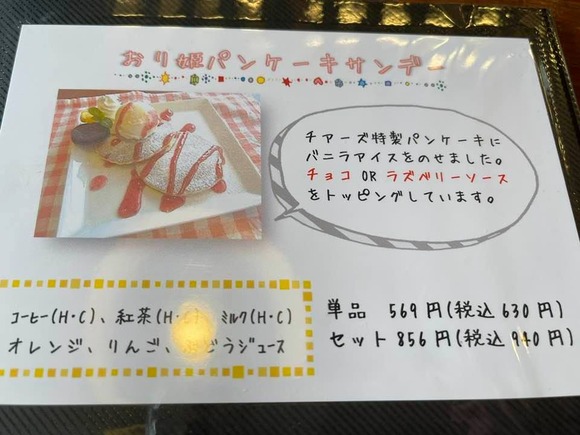 おり姫パンケーキサンデー
チアーズ特製パンケーキに
バニラアイスをのせました。
チョコ OR ラズベリーソース
をトッピングしています。
コーヒー(H・C)、紅茶(H・C)、ミルク(H・C)
オレンジ、りんご、ぶどうジュース
単品 569円(税込630円)
セット 856円(税込940円)